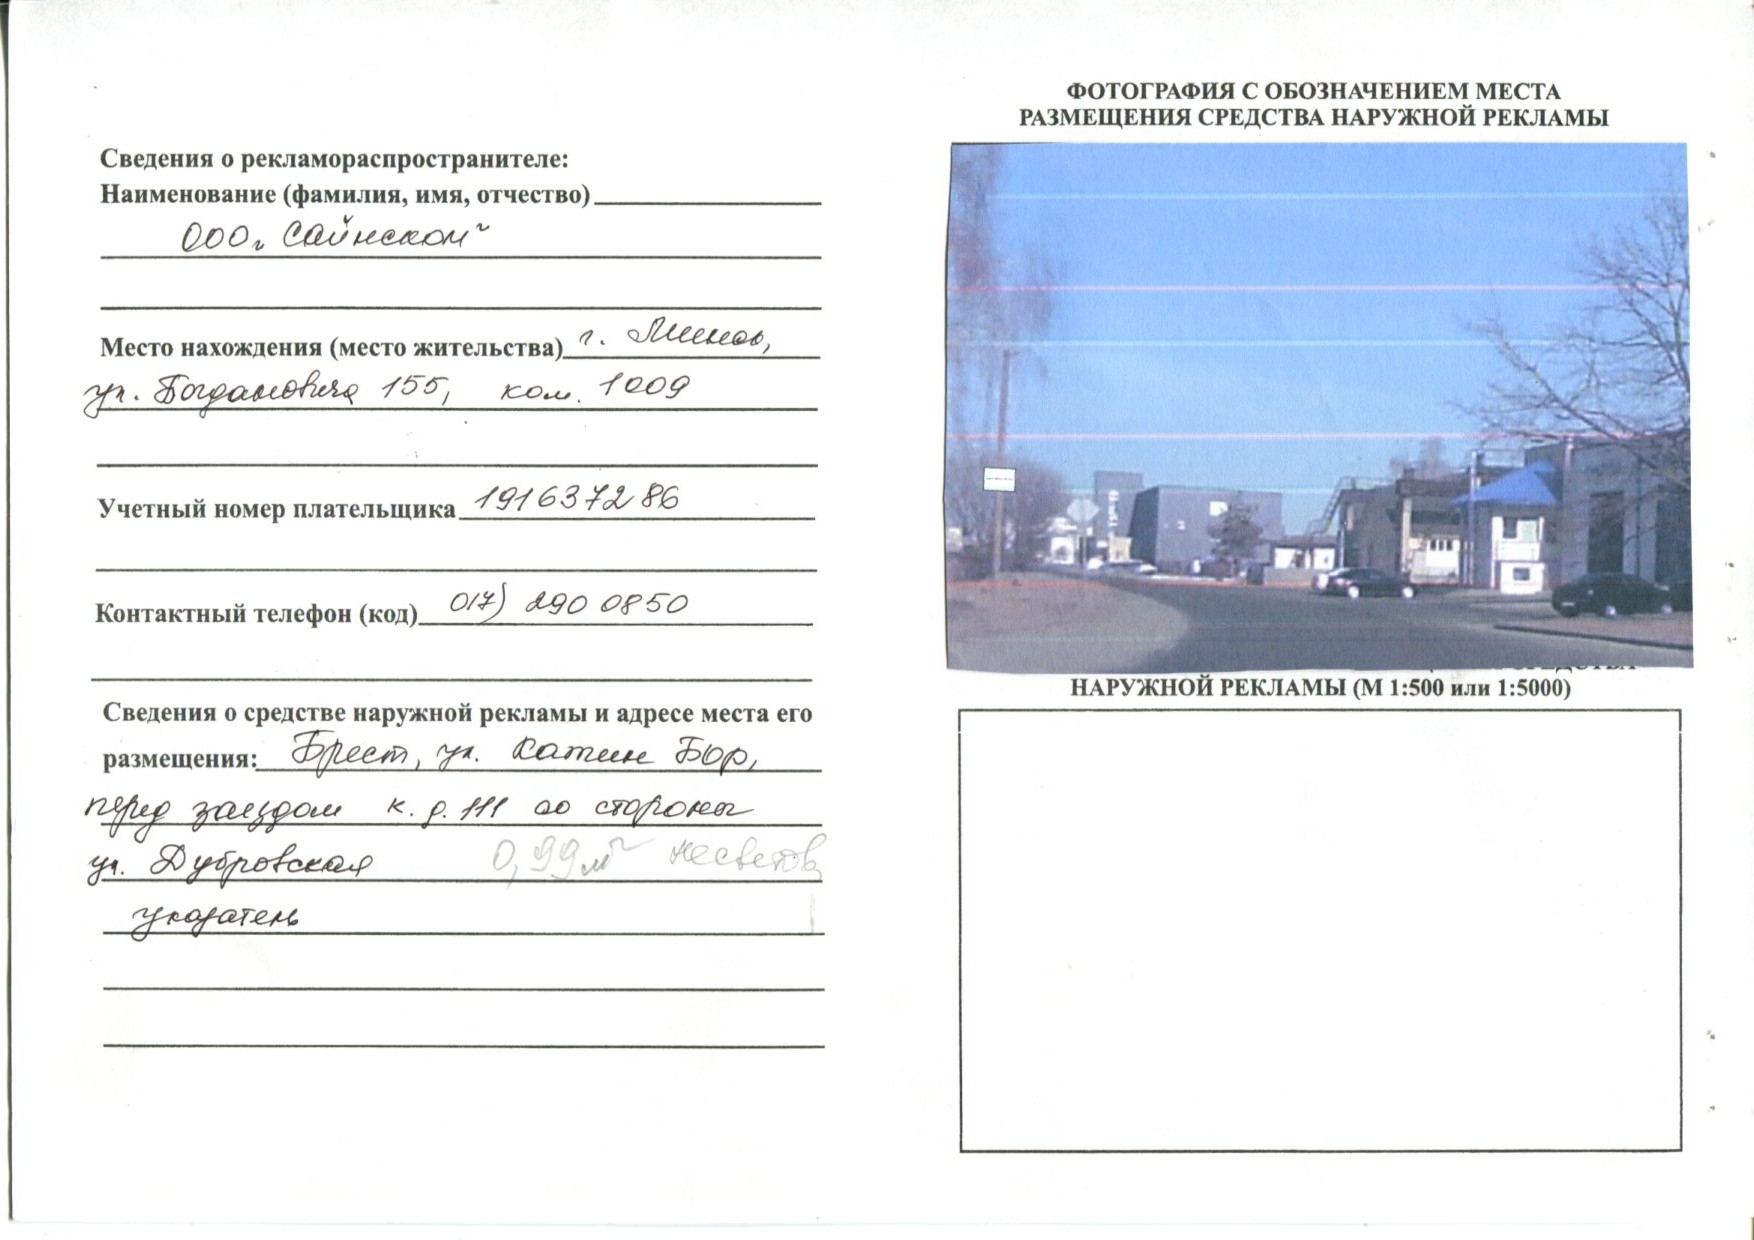 Сведения о рекламораспространителе:
Наименование (фамилия, имя, отчество)
ООО „Сайнском"
Место нахождения (место жительства) г. Минск,
ул. Богдановича 155, ком. 1009
Учетный номер плательщика 191637286
Контактный телефон (код) 017) 290 0850
Сведения о средстве наружной рекламы и адресе места его
размещения: Брест, ул. Катин Бор,
перед заездом к д. 111 со стороны
ул. Дубровская 0,99 м² несветов
указатель
ФОТОГРАФИЯ С ОБОЗНАЧЕНИЕМ МЕСТА
РАЗМЕЩЕНИЯ СРЕДСТВА НАРУЖНОЙ РЕКЛАМЫ
НАРУЖНОЙ РЕКЛАМЫ (М 1:500 или 1:5000)